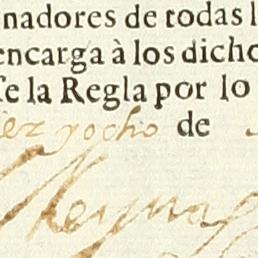 nadores de todas l
encarga à los dicho
se la Regla por lo
iez yocho de
Reyna